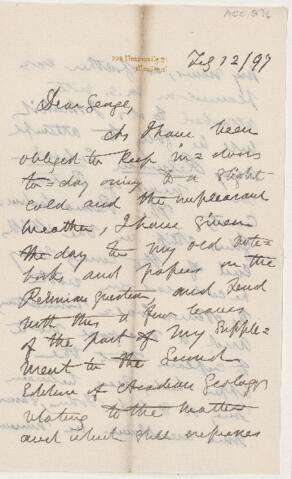 ACC. 976
Feb 12/97
Dear George,
As I have been
obliged to keep in=doors
to=day owing to a slight
cold and the unpleasant
weather, I have given
the day to my old note=
books and papers on the
question, and send
with this a few leaves
of the part of my Supple=
ment to the Second
Edition of Acadian Geology
relating to the matter
and which still expresses